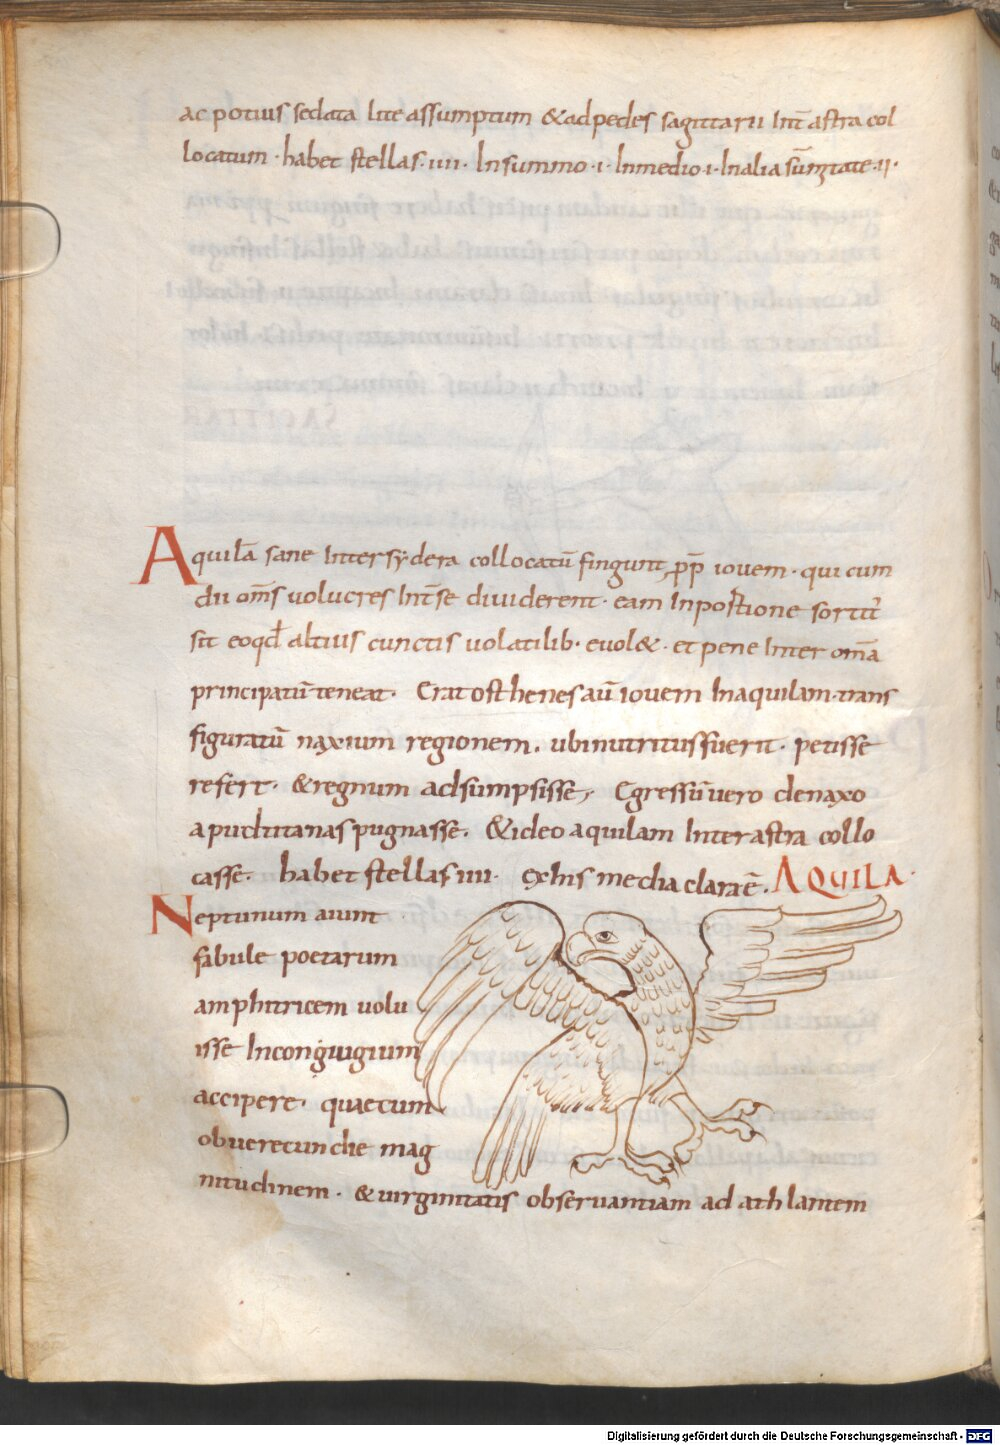 ac potius sedata lite assumptum & ad pedes sagittarii int̄ astra col
locatum · habet stellas · iiii · In summo · i · In medio · i · In alia sūmitate · ii ·
Aquilā sane inter sydera collocatū fingunt p̄p̄ iovem · qui cum
dii om̄s volucres int̄ se dividerent · eam in portione sortit'
sit eo qd̄ altius cunctis volatilib· evol& · et pene inter om̄a
principatū teneat · Eratosthenes aū iovem in aquilam trans
figuratū naxium regionem · ubi nutritus fuerit · petisse
refert · & regnum adsumpsisse; Egressū vero de naxo
apud titanas pugnasse · & ideo aquilam inter astra collo
casse · habet stellas iiii · ex his media clara ē · AQUILA ·
Neptunum aiunt
fabule poetarum
amphitricem volu
isse in coniugium
accipere · quae cum
ob verecundie mag
nitudinem · & virginitatis observantiam ad athlantem
Digitalisierung gefördert durch die Deutsche Forschungsgemeinschaft - DFG